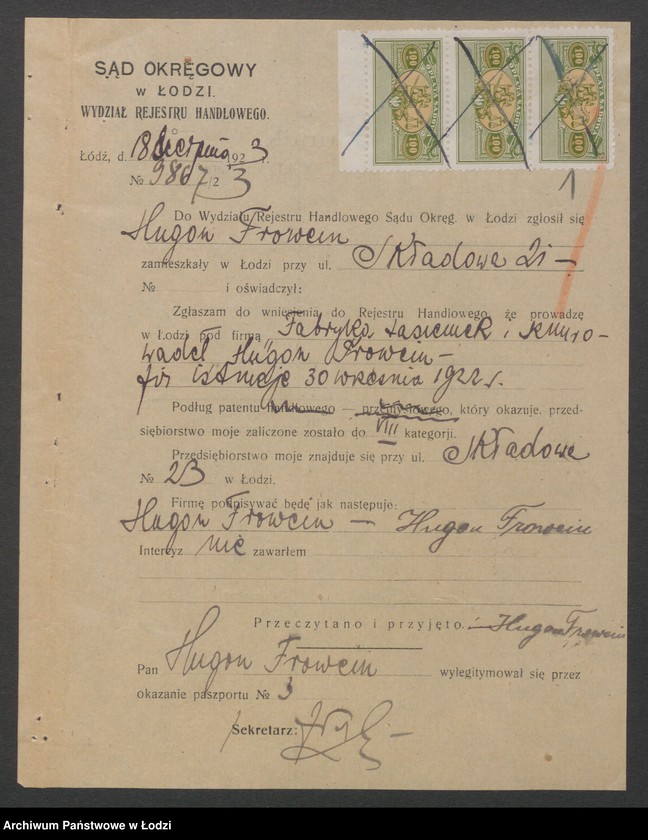 SĄD OKRĘGOWY
w ŁODZI.
WYDZIAŁ REJESTRU HANDLOWEGO.
Łódź, d. 18 Sierpnia 1923 r.
№ 9867/23
100 100 100
1
Do Wydziału Rejestru Handlowego Sądu Okręg. w Łodzi zgłosił się
Hugon Frowein
zamieszkały w Łodzi przy ul. Składowe 21 —
№ i oświadczył:
Zgłaszam do wniesienia do Rejestru Handlowego, że prowadzę
w Łodzi pod firmą Fabryka tasiemek i sznuro-
wadeł "Hugon Frowein —
fir istnieje 30 września 1922 r.
Podług patentu handlowego — przemysłowego, który okazuję, przed-
siębiorstwo moje zaliczone zostało do VIII kategorji.
Przedsiębiorstwo moje znajduje się przy ul. Składowe
№ 23 w Łodzi.
Firmę podpisywać będę jak następuje:
Hugon Frowein — Hugon Frowein
Intercyz nie zawarłem
Przeczytano i przyjęto. — Hugon Frowein
Pan Hugon Frowein wylegitymował się przez
okazanie paszportu № 3
Sekretarz:
Archiwum Państwowe w Łodzi